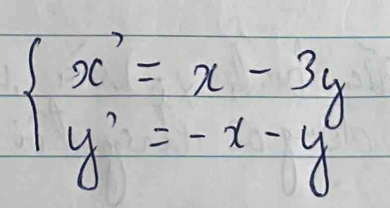 x' = x - 3y
y' = -x - y